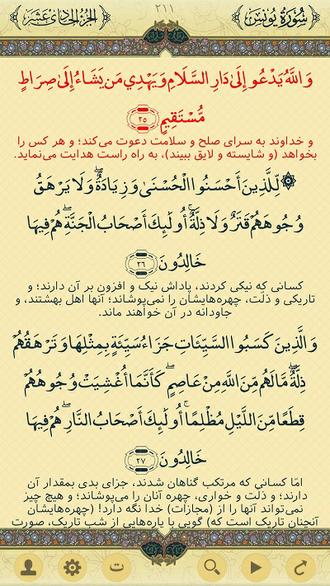 سُورَةُ يُونُس ٢١١ الجزء الحادی عشر
وَاللَّهُ يَدْعُو إِلَىٰ دَارِ السَّلَامِ وَيَهْدِي مَن يَشَاءُ إِلَىٰ صِرَاطٍ
مُّسْتَقِيمٍ ٢٥
و خداوند به سرای صلح و سلامت دعوت می‌کند؛ و هر کس را
بخواهد (و شایسته و لایق ببیند)، به راه راست هدایت می‌نماید.
۞ لِّلَّذِينَ أَحْسَنُوا الْحُسْنَىٰ وَزِيَادَةٌ ۖ وَلَا يَرْهَقُ
وُجُوهَهُمْ قَتَرٌ وَلَا ذِلَّةٌ ۚ أُولَٰئِكَ أَصْحَابُ الْجَنَّةِ ۖ هُمْ فِيهَا
خَالِدُونَ ٢٦
کسانی که نیکی کردند، پاداش نیک و افزون بر آن دارند؛ و
تاریکی و ذلّت، چهره‌هایشان را نمی‌پوشاند؛ آنها اهل بهشتند، و
جاودانه در آن خواهند ماند.
وَالَّذِينَ كَسَبُوا السَّيِّئَاتِ جَزَاءُ سَيِّئَةٍ بِمِثْلِهَا وَتَرْهَقُهُمْ
ذِلَّةٌ ۖ مَّا لَهُم مِّنَ اللَّهِ مِنْ عَاصِمٍ ۖ كَأَنَّمَا أُغْشِيَتْ وُجُوهُهُمْ
قِطَعًا مِّنَ اللَّيْلِ مُظْلِمًا ۚ أُولَٰئِكَ أَصْحَابُ النَّارِ ۖ هُمْ فِيهَا
خَالِدُونَ ٢٧
امّا کسانی که مرتکب گناهان شدند، جزای بدی بمقدار آن
دارند؛ و ذلّت و خواری، چهره آنان را می‌پوشاند؛ و هیچ چیز
نمی‌تواند آنها را از (مجازات) خدا نگه دارد! (چهره‌هایشان
آنچنان تاریک است که) گویی با پاره‌هایی از شب تاریک، صورت
ت